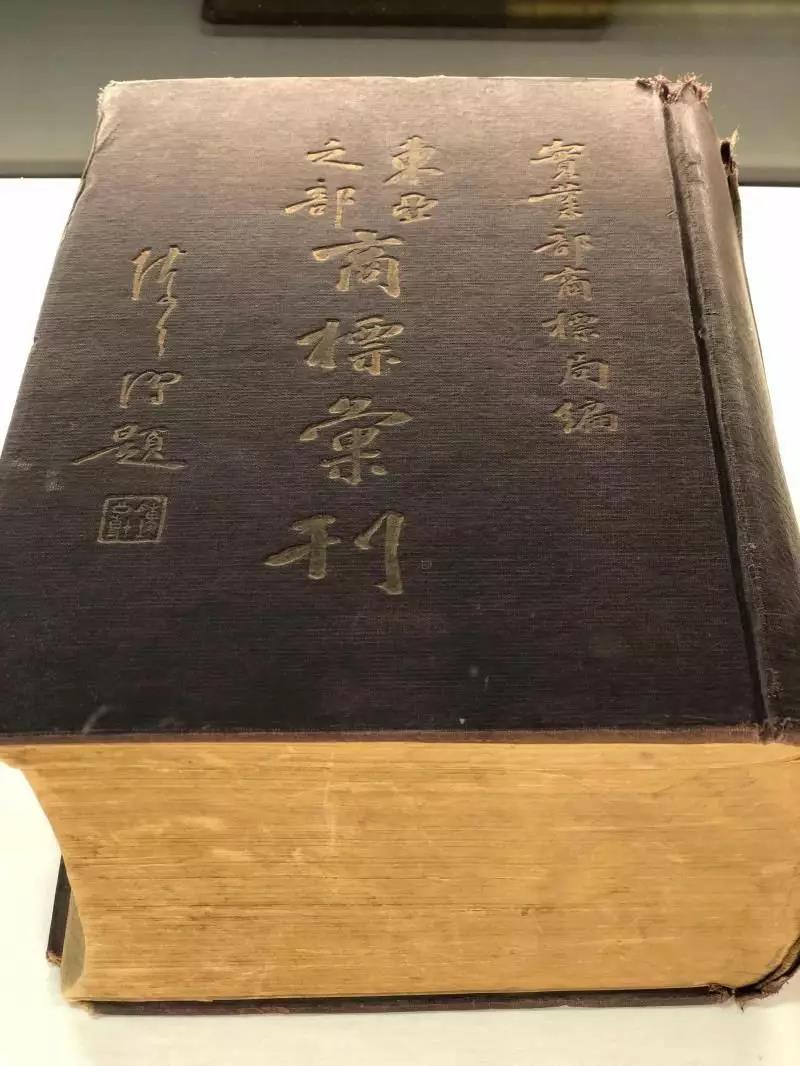 實業部商標局編
東亞
之部
商標彙刊
陳公博題